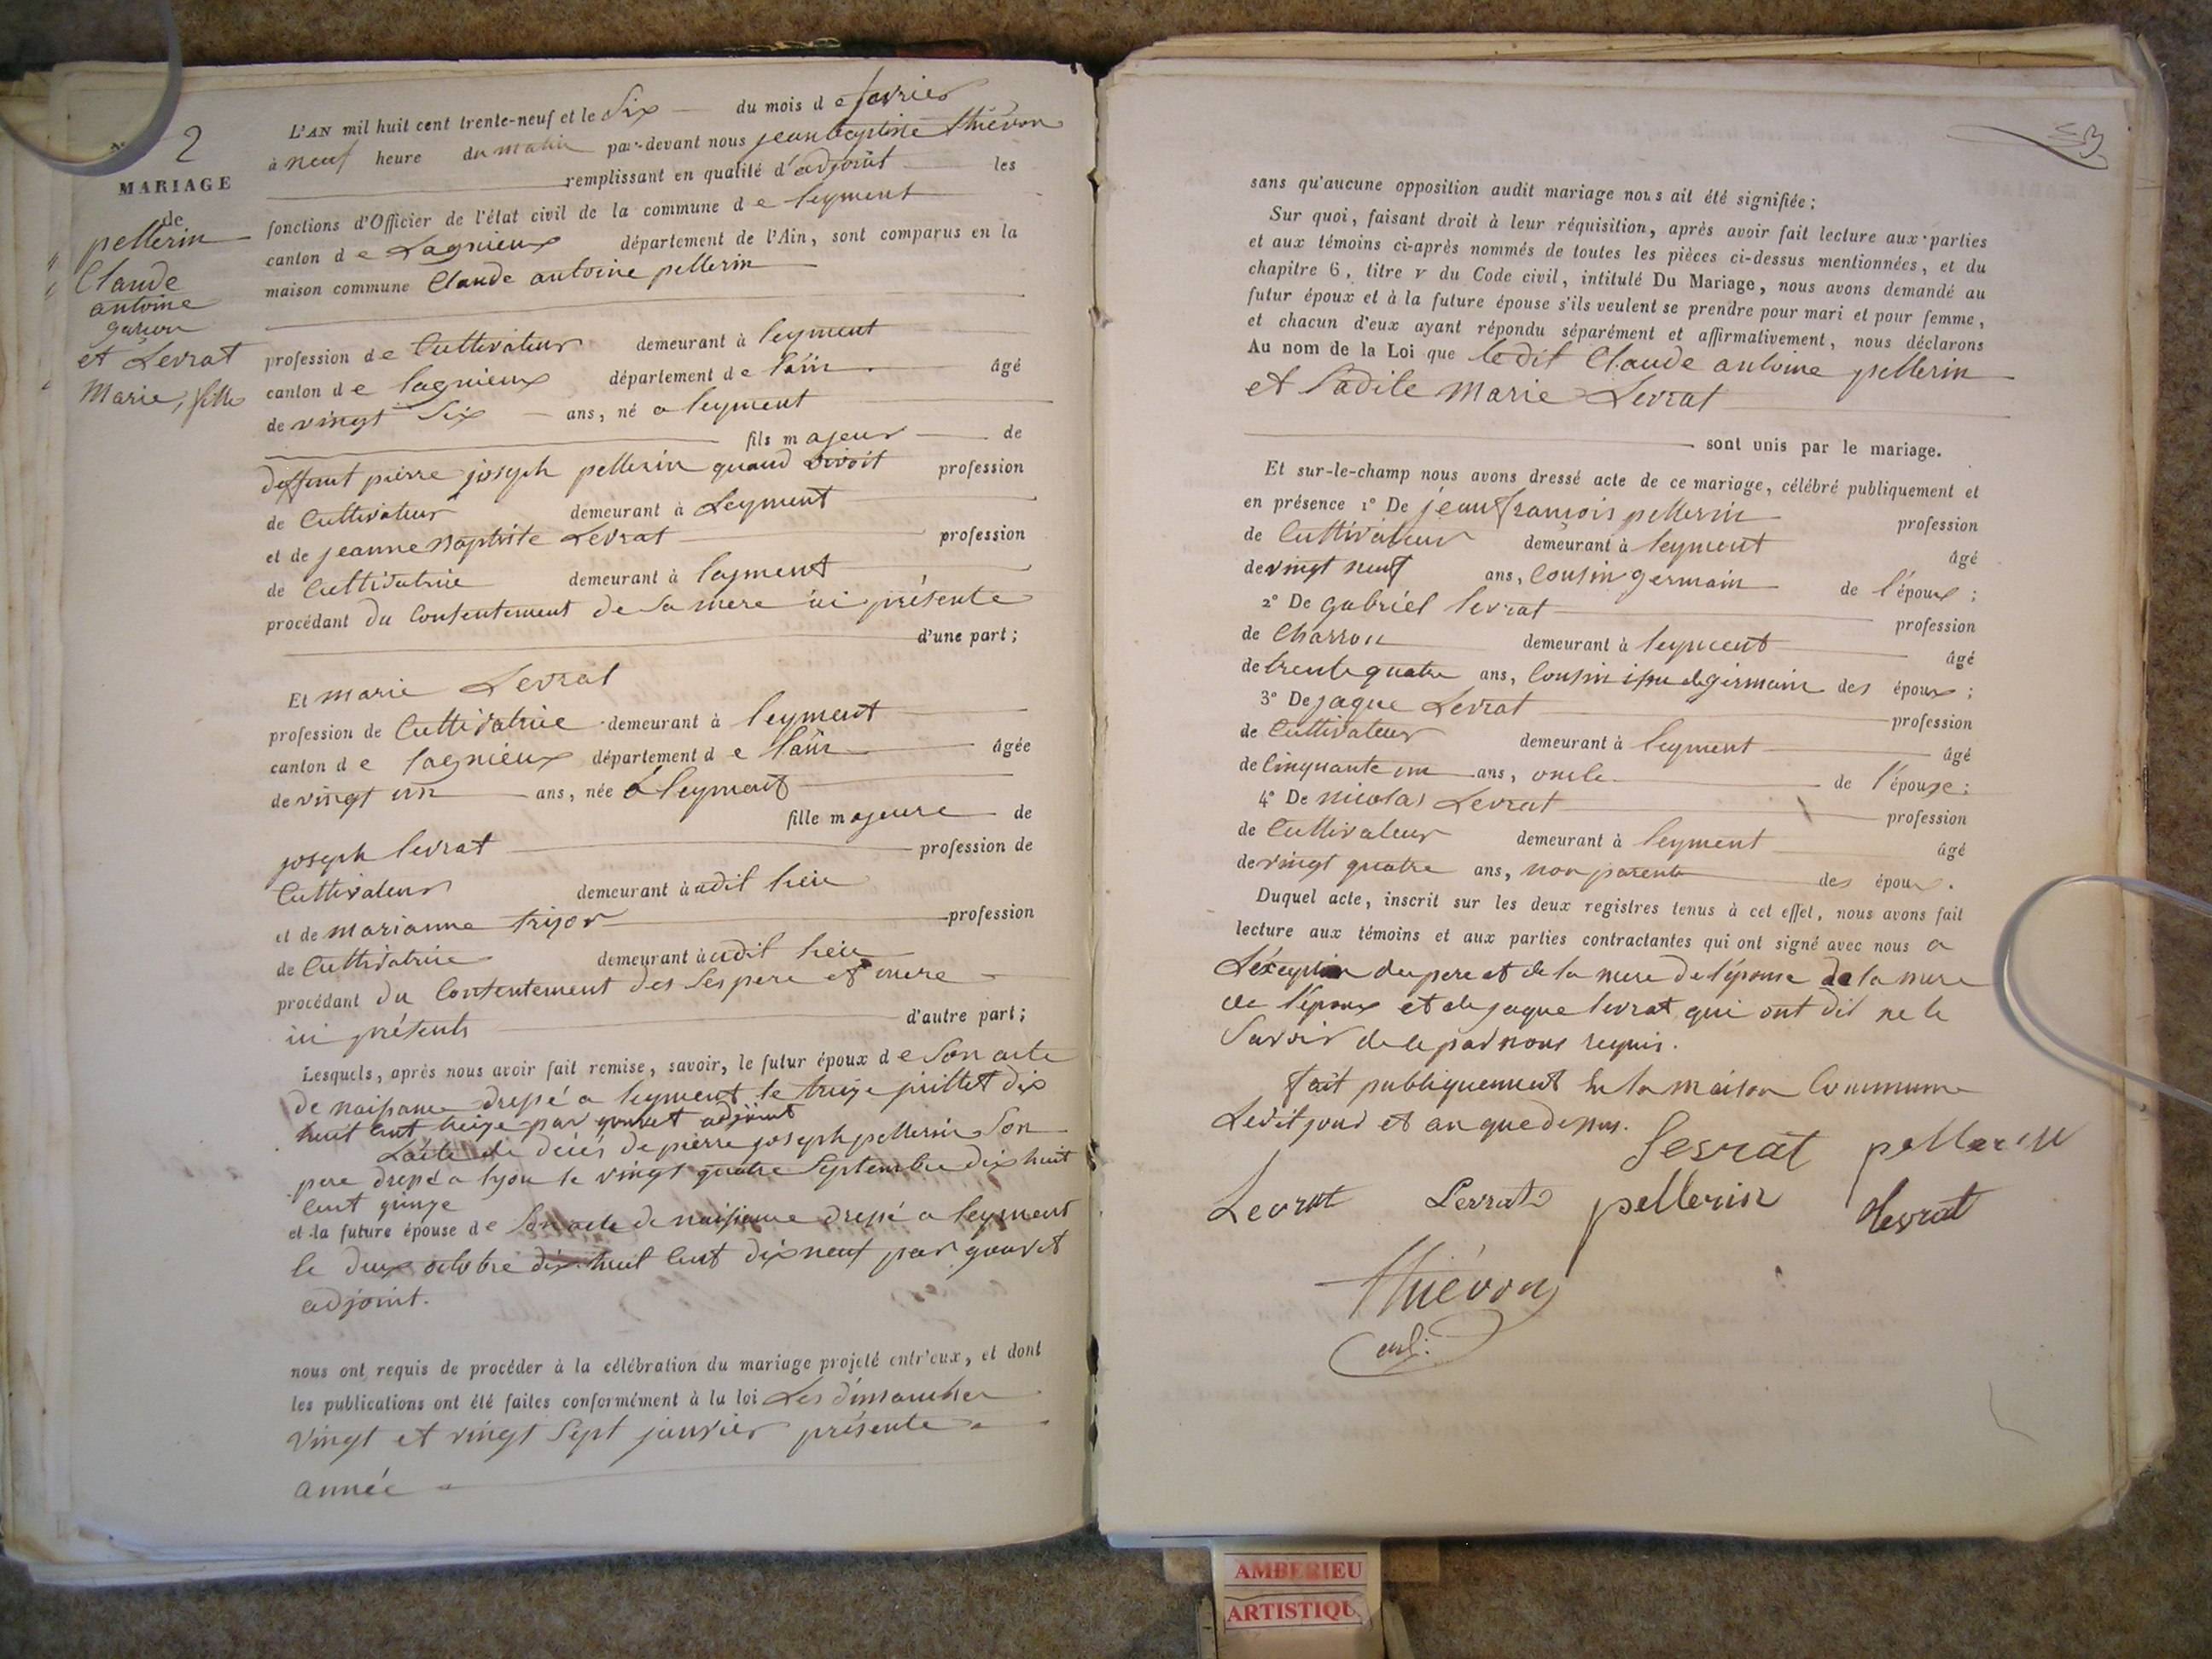 N° 2
MARIAGE
de
pellerin
Claude
antoine
garçon
et Levrat
Marie, fille
L'AN mil huit cent trente-neuf et le Six du mois de fevrier
à neuf heure du matin par-devant nous jean baptiste thiévon
remplissant en qualité d'adjoint les
fonctions d'Officier de l'état civil de la commune de leyment
canton de Lagnieux département de l'Ain, sont comparus en la
maison commune Claude antoine pellerin
profession de Cultivateur demeurant à leyment
canton de lagnieux département de l'ain. âgé
de vingt Six ans, né a leyment
fils majeur de
deffunt pierre joseph pellerin quand vivoit profession
de Cultivateur demeurant à Leyment
et de jeanne Baptiste Levrat profession
de Cultivatrice demeurant à leyment
procédant du Consentement de Sa mere ici présente
d'une part;
Et marie Levrat
profession de Cultivatrice demeurant à leyment
canton de lagnieux département de l'ain âgée
de vingt un ans, née à leyment
fille majeure de
joseph levrat profession de
Cultivateur demeurant à udit lieu
et de marianne profession
de Cultivatrice demeurant à udit lieu
procédant du Consentement des Ses pere et mere
ici présents d'autre part;
Lesquels, après nous avoir fait remise, savoir, le futur époux de Son acte
de naissance dressé a leyment le treize juillet dix
huit cent treize par gouvet adjoint
L'acte de décés de pierre joseph pellerin Son
pere dressé a lyon le vingt quatre Septembre dix huit
cent quinze
et la future épouse de Son acte de naissance dressé a leyment
le deux octobre dix huit Cent dix neuf par gouvet
adjoint.
nous ont requis de procéder à la célébration du mariage projeté entr'eux, et dont
les publications ont été faites conformément à la loi Les dimanches
vingt et vingt Sept janvier présente
année
sans qu'aucune opposition audit mariage nous ait été signifiée;
Sur quoi, faisant droit à leur réquisition, après avoir fait lecture aux parties
et aux témoins ci-après nommés de toutes les pièces ci-dessus mentionnées, et du
chapitre 6, titre v du Code civil, intitulé Du Mariage, nous avons demandé au
futur époux et à la future épouse s'ils veulent se prendre pour mari et pour femme,
et chacun d'eux ayant répondu séparément et affirmativement, nous déclarons
Au nom de la Loi que ledit Claude antoine pellerin
et Ladite Marie Levrat
sont unis par le mariage.
Et sur-le-champ nous avons dressé acte de ce mariage, célébré publiquement et
en présence 1° De jean françois pellerin profession
de Cultivateur demeurant à leyment âgé
de vingt neuf ans, Cousin germain de l'époux;
2° De gabriel levrat profession
de Charron demeurant à leyment âgé
de trente quatre ans, Cousin issu de germain des époux;
3° De jaque Levrat profession
de Cultivateur demeurant à leyment âgé
de Cinquante un ans, oncle de l'épouse;
4° De nicolas Levrat profession
de Cultivateur demeurant à leyment âgé
de vingt quatre ans, non parent des époux.
Duquel acte, inscrit sur les deux registres tenus à cet effet, nous avons fait
lecture aux témoins et aux parties contractantes qui ont signé avec nous a
L'éxception du pere et de la mere de l'épouse de la mere
de l'époux et de jaque levrat qui ont dit ne le
Savoir de ce par nous requis.
fait publiquement en la maison Commune
Ledit jour et an que dessus.
Levrat pellerin
Levrat Levrat pellerin levrat
thiévon
adj.
AMBERIEU
ARTISTIQU